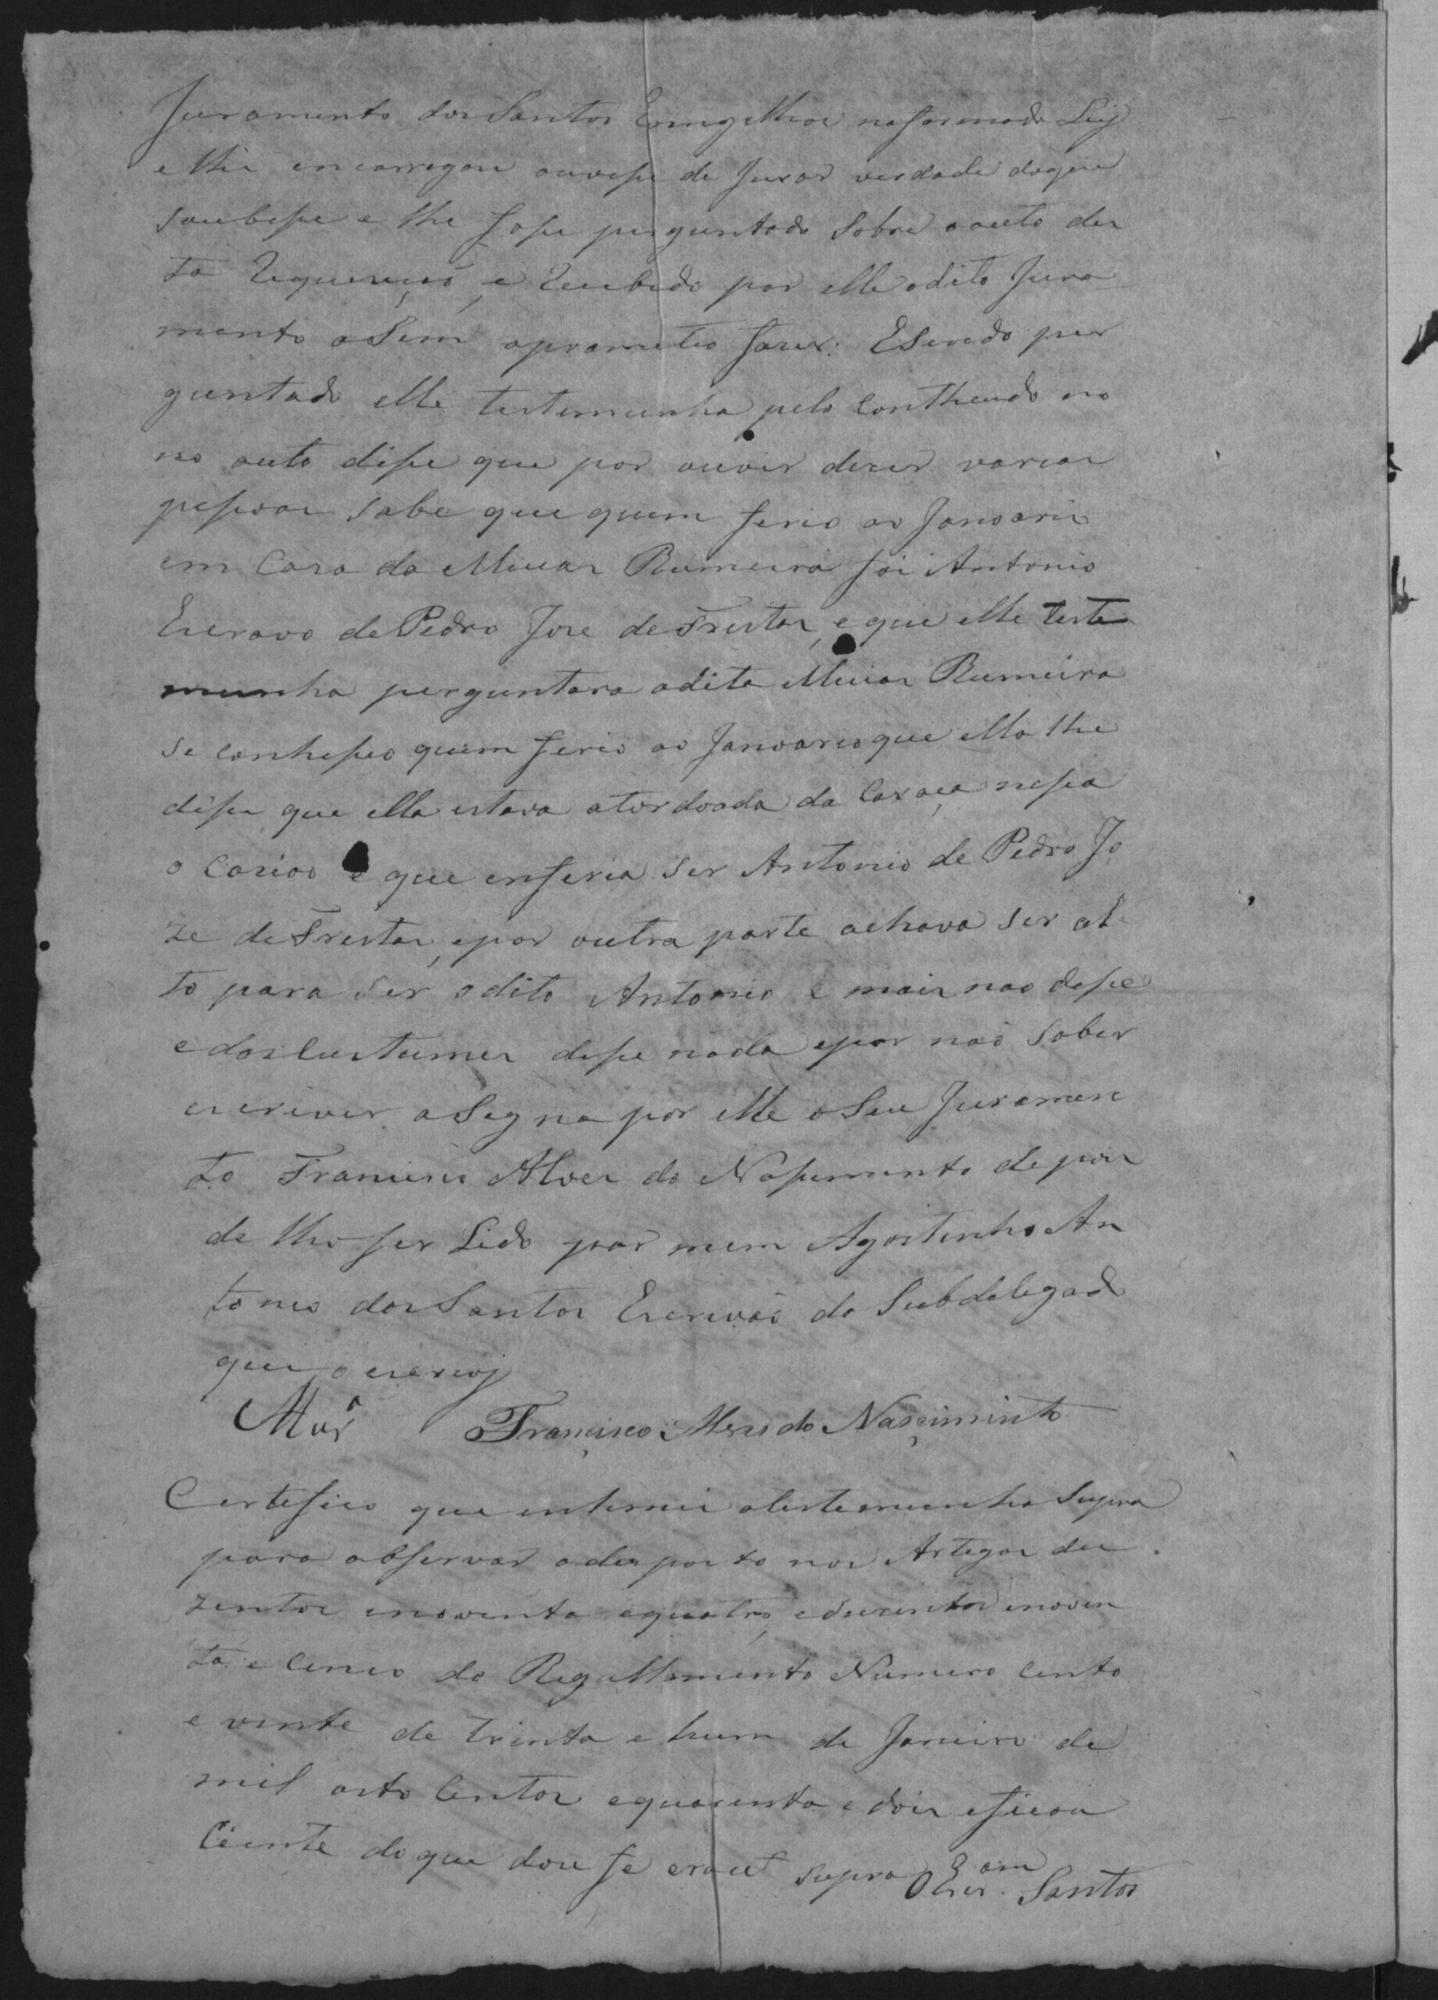 Juramento dos Santos Evngelhos na forma da Ley
e lhe encarregou ouvese de jurar verdade doque
soubese e lhe fose perguntado sobre o auto des
ta e recebido por elle o dito Jura
mento asim o prometeo fazer. E Sendo per
guntado elle testemunha pelo contheudo no
no auto dise que por ouvir dizer varias
pesoas sabe que quem ferio ao Janoario
em Caza da Romeira foi Antonio
Escravo de Pedro Joze de Freitas, e que elle teste
munha perguntara a dita Romeira
se conheseo quem ferio ao Janoario que ella lhe
dise que ella estava atordoada da Caxaça nesa
o cazião e que enferia ser Antonio de Pedro Jo
ze de Freitas, e por outra parte achava ser al
to para ser o dito Antonio e mais nao dise
e dos Custumes dise nada e por não saber
escriver asigna por elle o Seu Juramen
to Francisco Alves do Nasimento depois
de lhe ser Lido por mim Agostinho An
tonio dos Santos Escrivão do Subdelegado
que o escrevj
Francisco Alves do Nascimento
Certefico que entimei a testemunha supra
para observar o desposto nos Artigos du
zentos e noventa e quatro, e duzentos e noven
ta e cinco do Regullamento Numero cento
e vinte de trinta e hum de Janeiro de
mil oito Centos e quarenta e dois e ficou
Ciente do que dou fe era ut supra O Escr.am Santos